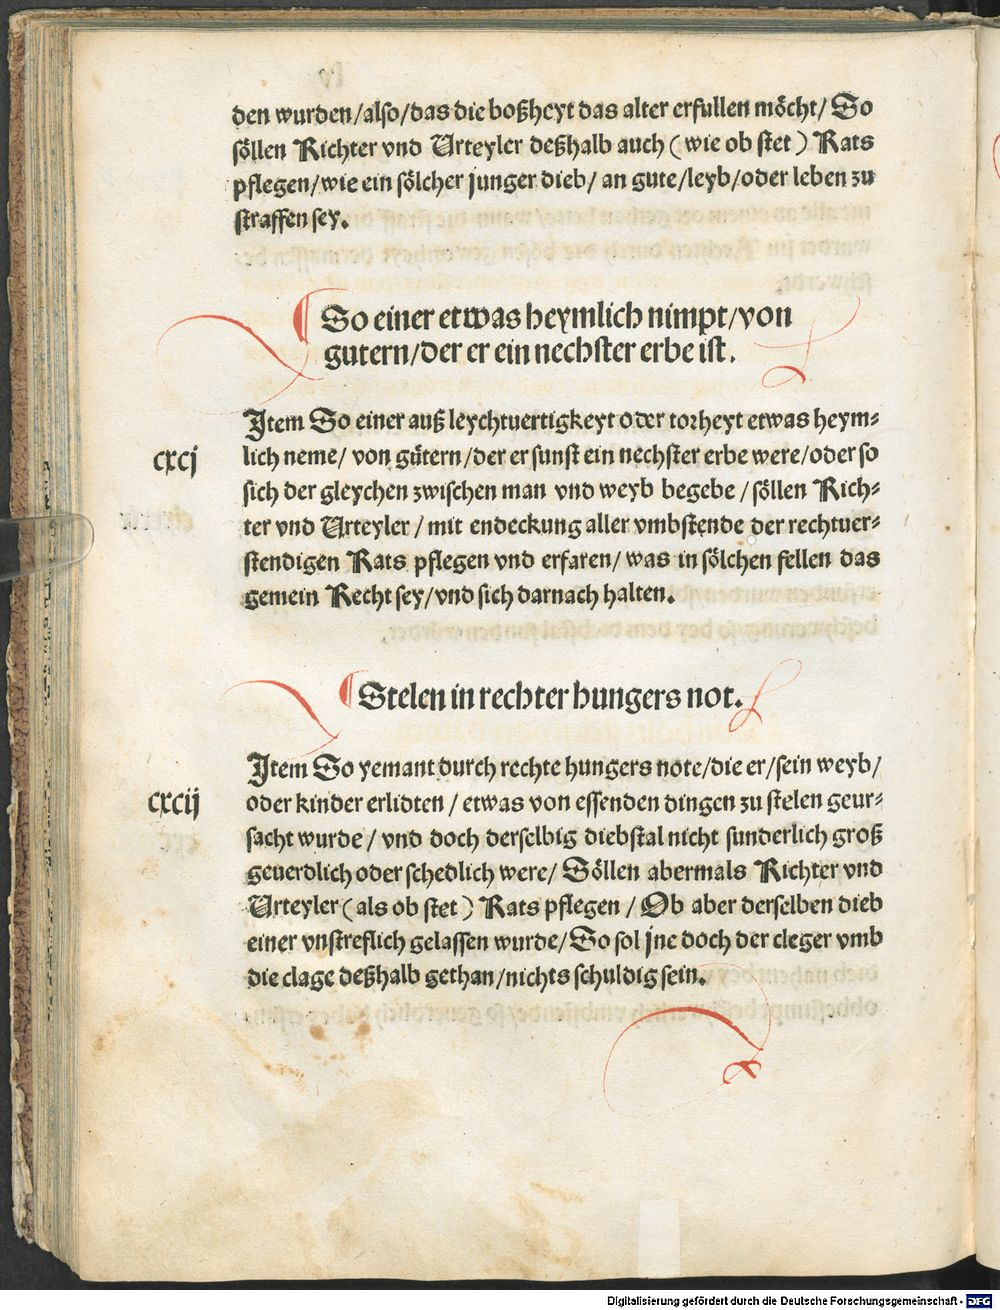 den wurden/also/das die boßheyt das alter erfullen möcht/ So
söllen Richter vnd Urteyler deßhalb auch ( wie ob stet ) Rats
pflegen/wie ein sölcher junger dieb/ an gute/leyb/oder leben zu
straffen sey.
So einer etwas heymlich nimpt/von
gutern/der er ein nechster erbe ist.
Jtem So einer auß leychtuertigkeyt oder torheyt etwas heym-
cxcj
lich neme/ von gütern/der er sunst ein nechster erbe were/oder so
sich der gleychen zwischen man vnd weyb begebe / söllen Rich-
ter vnd Urteyler / mit endeckung aller vmbstende der rechtuer-
stendigen Rats pflegen vnd erfaren/ was in sölchen fellen das
gemein Recht sey/vnd sich darnach halten.
Stelen in rechter hungers not.
Jtem So yemant durch rechte hungers note/die er/sein weyb/
cxcij
oder kinder erlidten / etwas von essenden dingen zu stelen geur-
sacht wurde / vnd doch derselbig diebstal nicht sunderlich groß
geuerdlich oder schedlich were/ Söllen abermals Richter vnd
Urteyler ( als ob stet ) Rats pflegen / Ob aber derselben dieb
einer vnstreflich gelassen wurde/ So sol jne doch der cleger vmb
die clage deßhalb gethan/nichts schuldig sein.
Digitalisierung gefördert durch die Deutsche Forschungsgemeinschaft - DFG